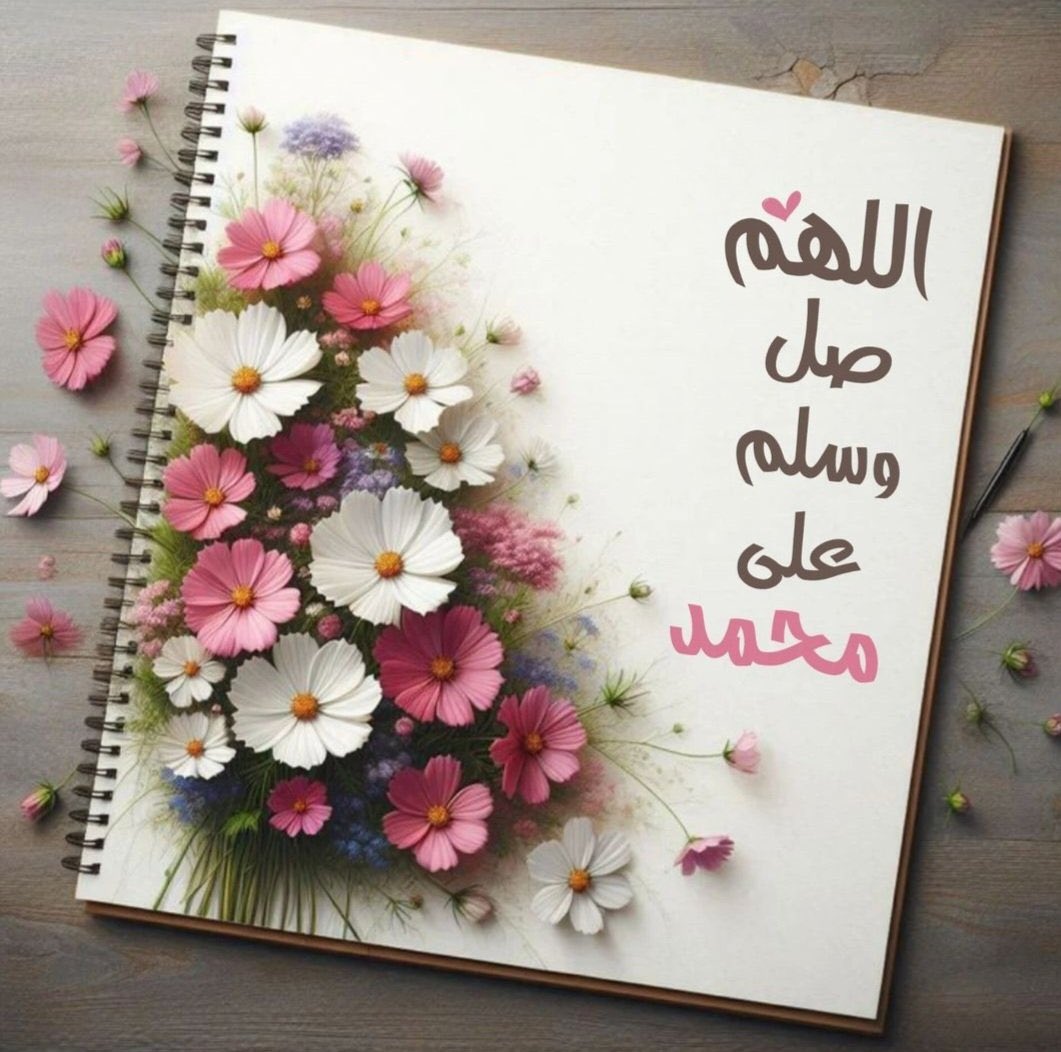 اللهم
صل
وسلم
على
محمد